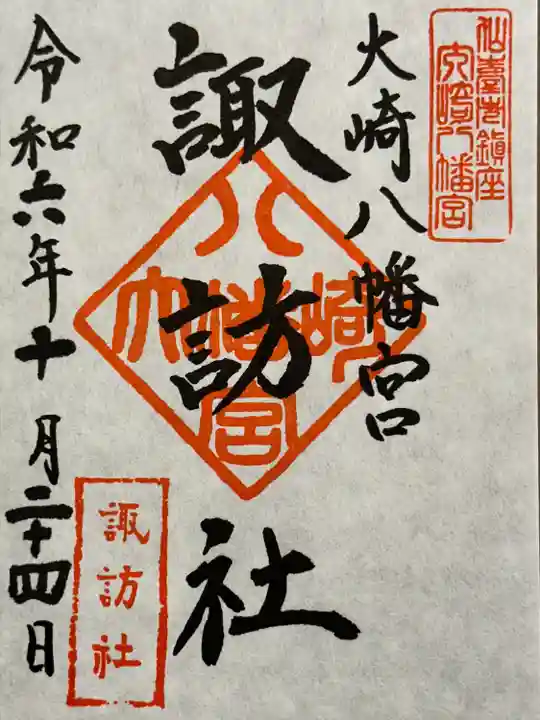 仙臺市鎮座
大崎八幡宮
大崎八幡宮
諏訪社
八
大幡崎
宮
諏訪社
令和六年十月二十四日